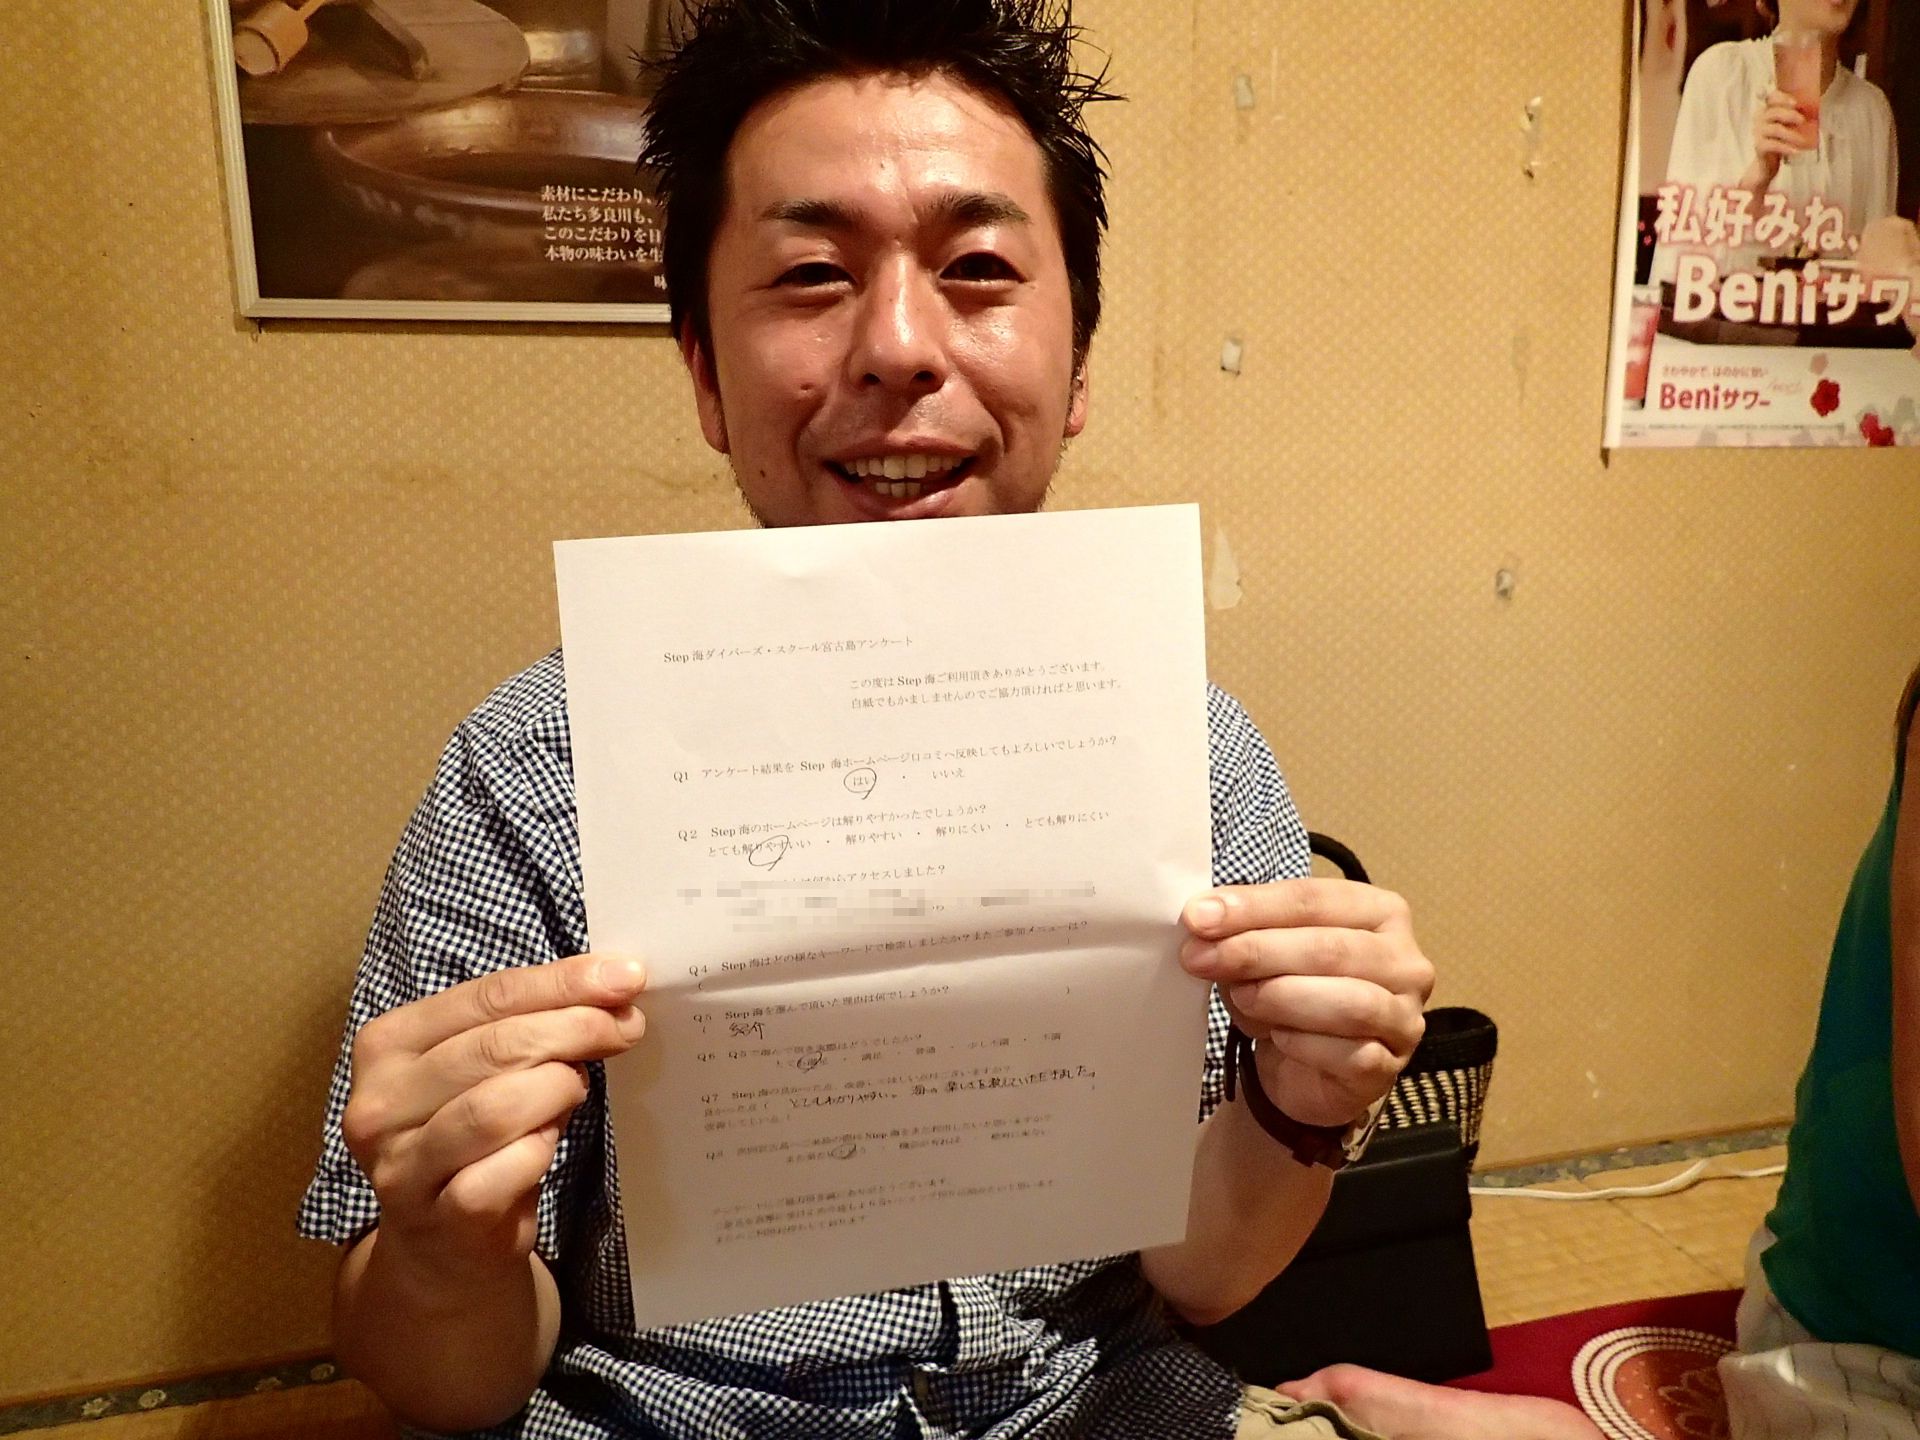 素材にこだわり、
私たち多良川も、
このこだわりを日
本物の味わいを生
味
私好みね、
Beniサワー
さわやかで、ほのかに甘い
Beniサワー
Step 海ダイバーズ・スクール宮古島アンケート
この度は Step 海ご利用頂きありがとうございます。
白紙でもかましませんのでご協力頂ければと思います。
Q1 アンケート結果を Step 海ホームページ口コミへ反映してもよろしいでしょうか？
はい ・ いいえ
Q2 Step 海のホームページは解りやすかったでしょうか？
とても解りやすいい ・ 解りやすい ・ 解りにくい ・ とても解りにくい
は何からアクセスしました？
Q4 Step 海はどの様なキーワードで検索しましたか？またご参加メニューは？
( )
Q5 Step 海を選んで頂いた理由は何でしょうか？
( 紹介 )
Q6 Q5で選んで頂き実際はどうでしたか？
とても満足 ・ 満足 ・ 普通 ・ 少し不満 ・ 不満
Q7 Step 海の良かった点、改善してほしい点はございますか？
良かった点 ( とてもわかりやすい。海の楽しさを教えていただきました。
改善してほしい点 ( )
Q8 次回宮古島へご来島の際に Step 海をまた利用したいと思いますか？
また来たいと思う ・ 機会が有れば ・ 絶対に来ない
アンケートにご協力頂き誠にありがとうございます。